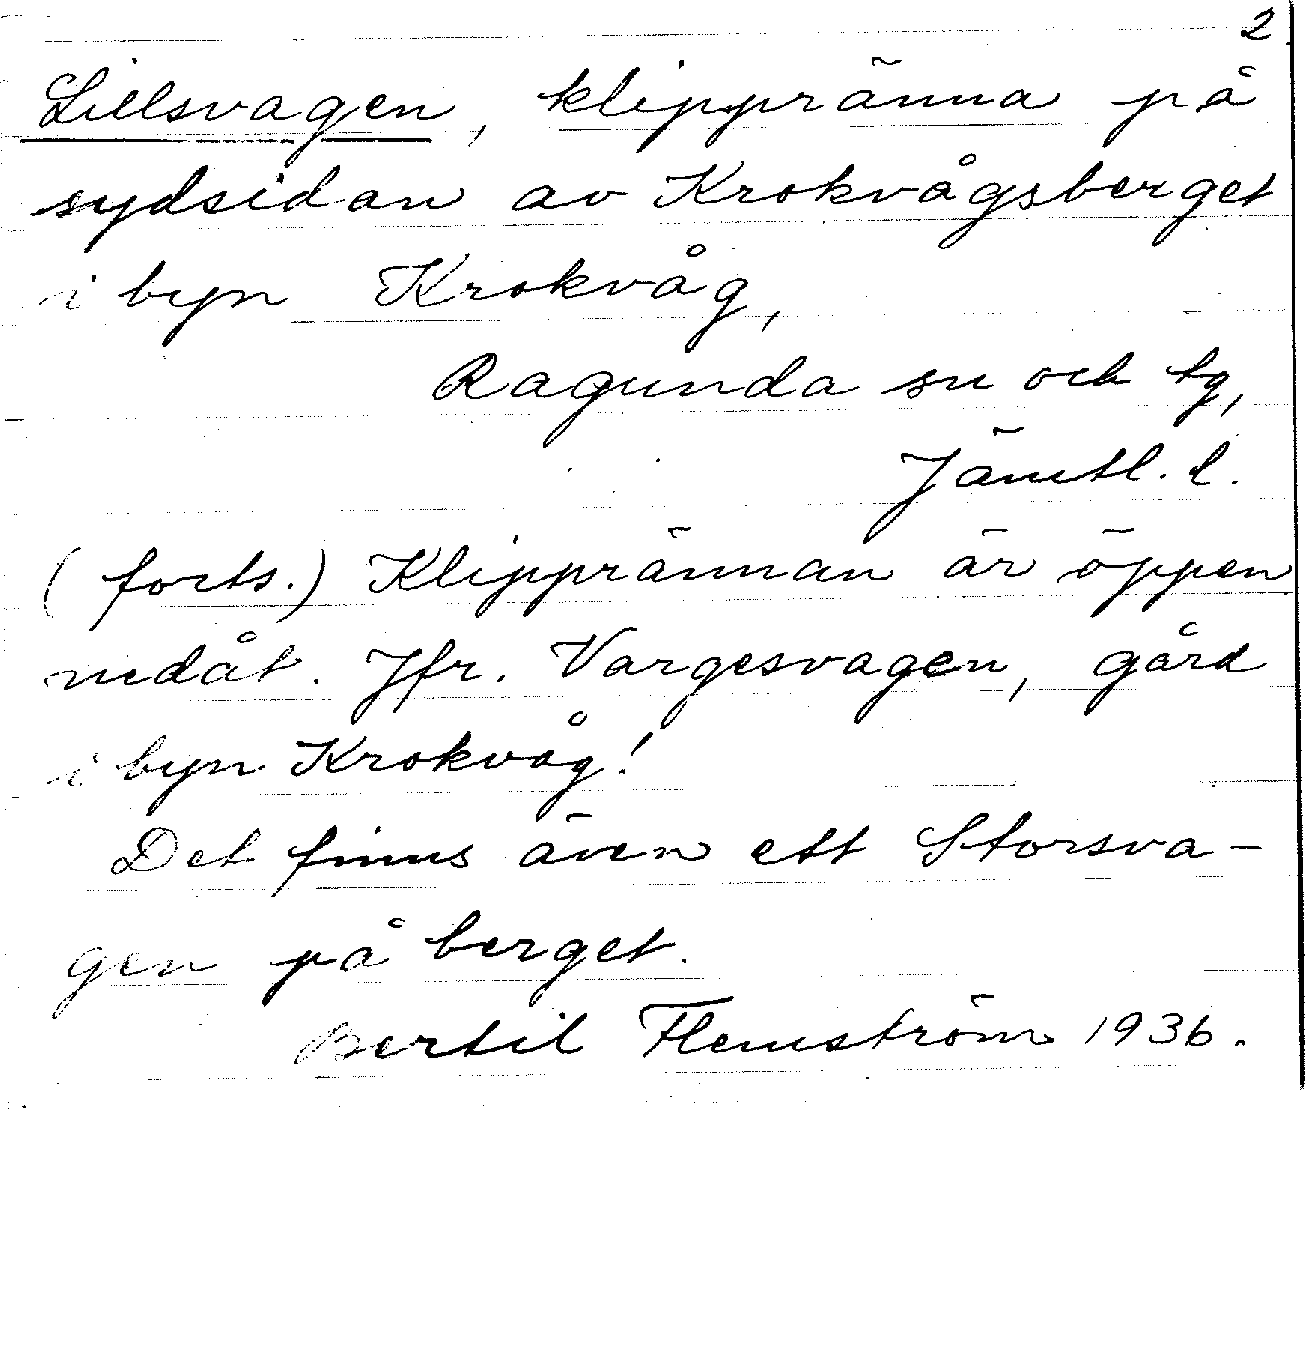 2
Lillsvagen, klippränna på
sydsidan av Krokvågsberget
i byn Krokvåg,
Ragunda sn och tg,
Jämtl. l.
(forts.) Klipprännan är öppen
nedåt. Jfr. Vargesvagen, gård
i byn Krokvåg!
Det finns även ett Storsva-
gen på berget.
Bertil Flemström 1936.